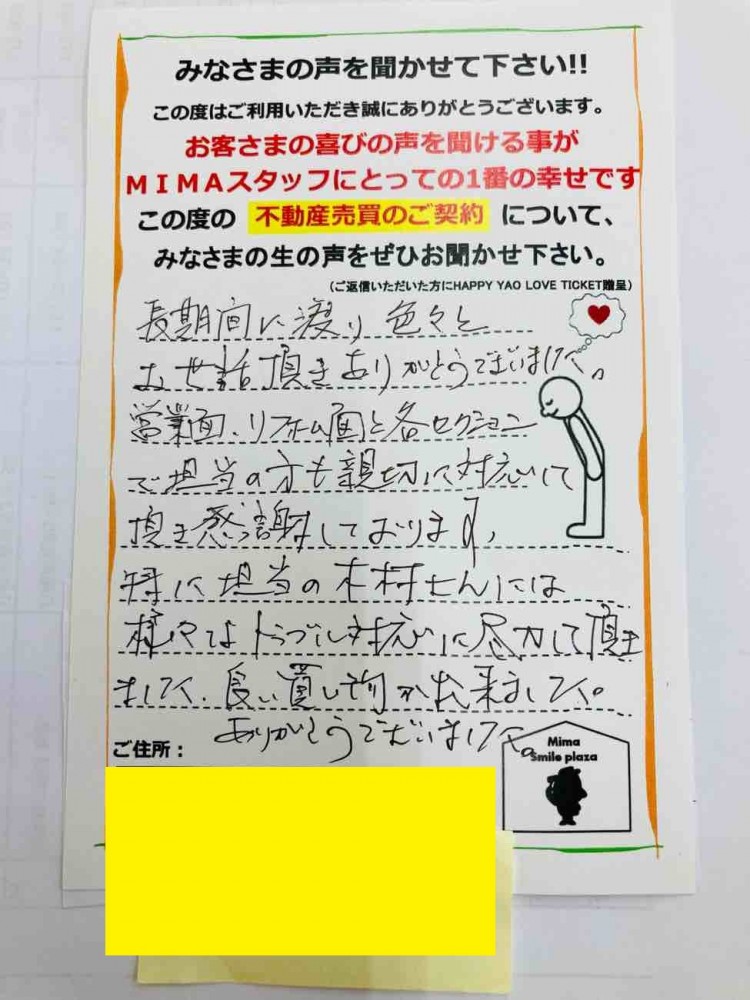 みなさまの声を聞かせて下さい!!
この度はご利用いただき誠にありがとうございます。
お客さまの喜びの声を聞ける事が
MIMAスタッフにとっての1番の幸せです
この度の 不動産売買のご契約 について、
みなさまの生の声をぜひお聞かせ下さい。
(ご返信いただいた方にHAPPY YAO LOVE TICKET贈呈)
長期間に渡り色々と
お世話頂きありがとうございました。
営業面、リフォーム面と各セクション
で担当の方も親切に対応して
頂き感謝しております。
特に担当の木村さんには
様々なトラブル対応に尽力して頂き
ました、良い買い物が出来ました。
ありがとうございました。
ご住所：
Mima
Smile plaza